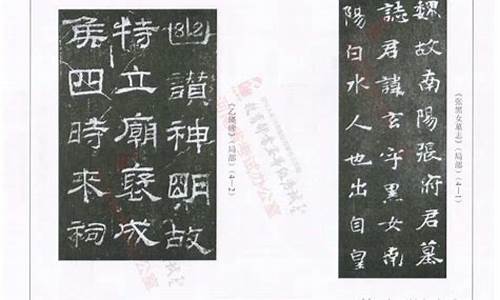 魏故南陽張府君墓
誌君諱玄字黑女南
陽白水人也出自皇
《张黑女墓志》(局部)(4—1)
讃神明故
特立廟褒成
侯四時来祠
《乙瑛碑》(局部)(4—2)